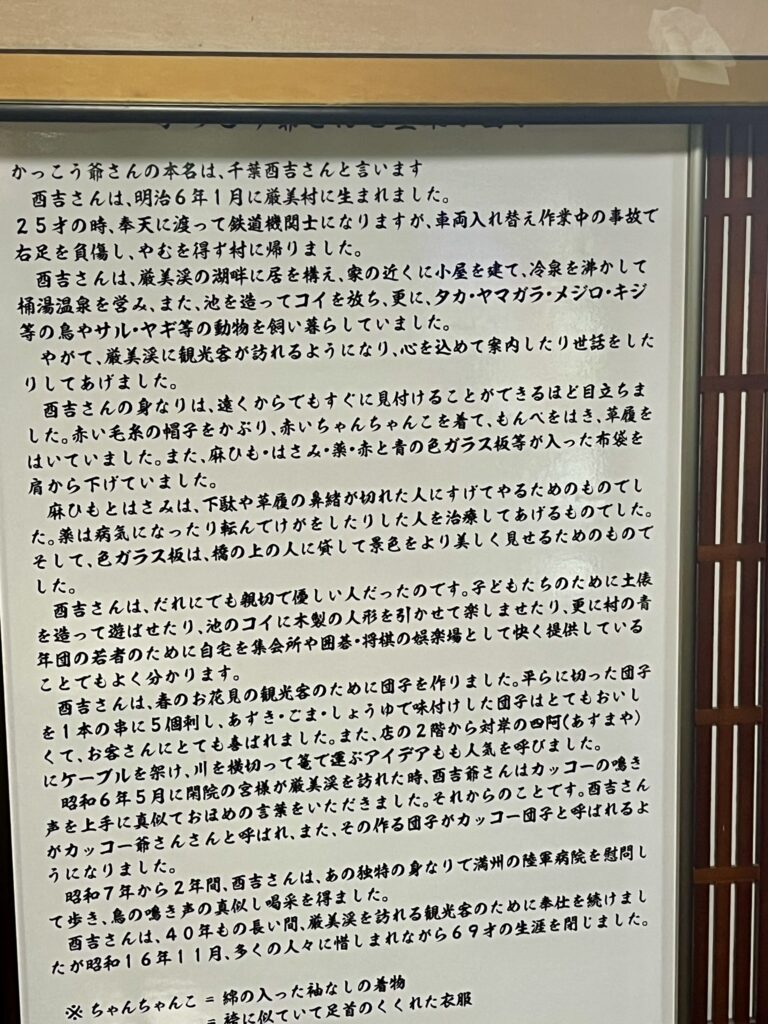 かっこう爺さんの本名は、千葉酉吉さんと言います
酉吉さんは、明治6年1月に厳美村に生まれました。
25才の時、奉天に渡って鉄道機関士になりますが、車両入れ替え作業中の事故で
右足を負傷し、やむを得ず村に帰りました。
酉吉さんは、厳美渓の湖畔に居を構え、家の近くに小屋を建て、冷泉を沸かして
桶湯温泉を営み、また、池を造ってコイを放ち、更に、タカ・ヤマガラ・メジロ・キジ
等の鳥やサル・ヤギ等の動物を飼い暮らしていました。
やがて、厳美渓に観光客が訪れるようになり、心を込めて案内したり世話をした
りしてあげました。
酉吉さんの身なりは、遠くからでもすぐに見付けることができるほど目立ちま
した。赤い毛糸の帽子をかぶり、赤いちゃんちゃんこを着て、もんぺをはき、草履を
はいていました。また、麻ひも・はさみ・薬・赤と青の色ガラス板等が入った布袋を
肩から下げていました。
麻ひもとはさみは、下駄や草履の鼻緒が切れた人にすげてやるためのものでし
た。薬は病気になったり転んでけがをしたりした人を治療してあげるものでした。
そして、色ガラス板は、橋の上の人に貸して景色をより美しく見せるためのもので
した。
酉吉さんは、だれにでも親切で優しい人だったのです。子どもたちのために土俵
を造って遊ばせたり、池のコイに木製の人形を引かせて楽しませたり、更に村の青
年団の若者のために自宅を集会所や囲碁・将棋の娯楽場として快く提供している
ことでもよく分かります。
酉吉さんは、春のお花見の観光客のために団子を作りました。平らに切った団子
を1本の串に5個刺し、あずき・ごま・しょうゆで味付けした団子はとてもおいし
くて、お客さんにとても喜ばれました。また、店の2階から対岸の四阿(あずまや)
にケーブルを架け、川を横切って篭で運ぶアイデアもも人気を呼びました。
昭和6年5月に閑院の宮様が厳美渓を訪れた時、酉吉爺さんはカッコーの鳴き
声を上手に真似ておほめの言葉をいただきました。それからのことです。酉吉さん
がカッコー爺さんさんと呼ばれ、また、その作る団子がカッコー団子と呼ばれるよ
うになりました。
昭和7年から2年間、酉吉さんは、あの独特の身なりで満州の陸軍病院を慰問し
て歩き、鳥の鳴き声の真似し喝采を得ました。
酉吉さんは、40年もの長い間、厳美渓を訪れる観光客のために奉仕を続けまし
たが昭和16年11月、多くの人々に惜しまれながら69才の生涯を閉じました。
※ ちゃんちゃんこ = 綿の入った袖なしの着物
= 袴に似ていて足首のくくれた衣服